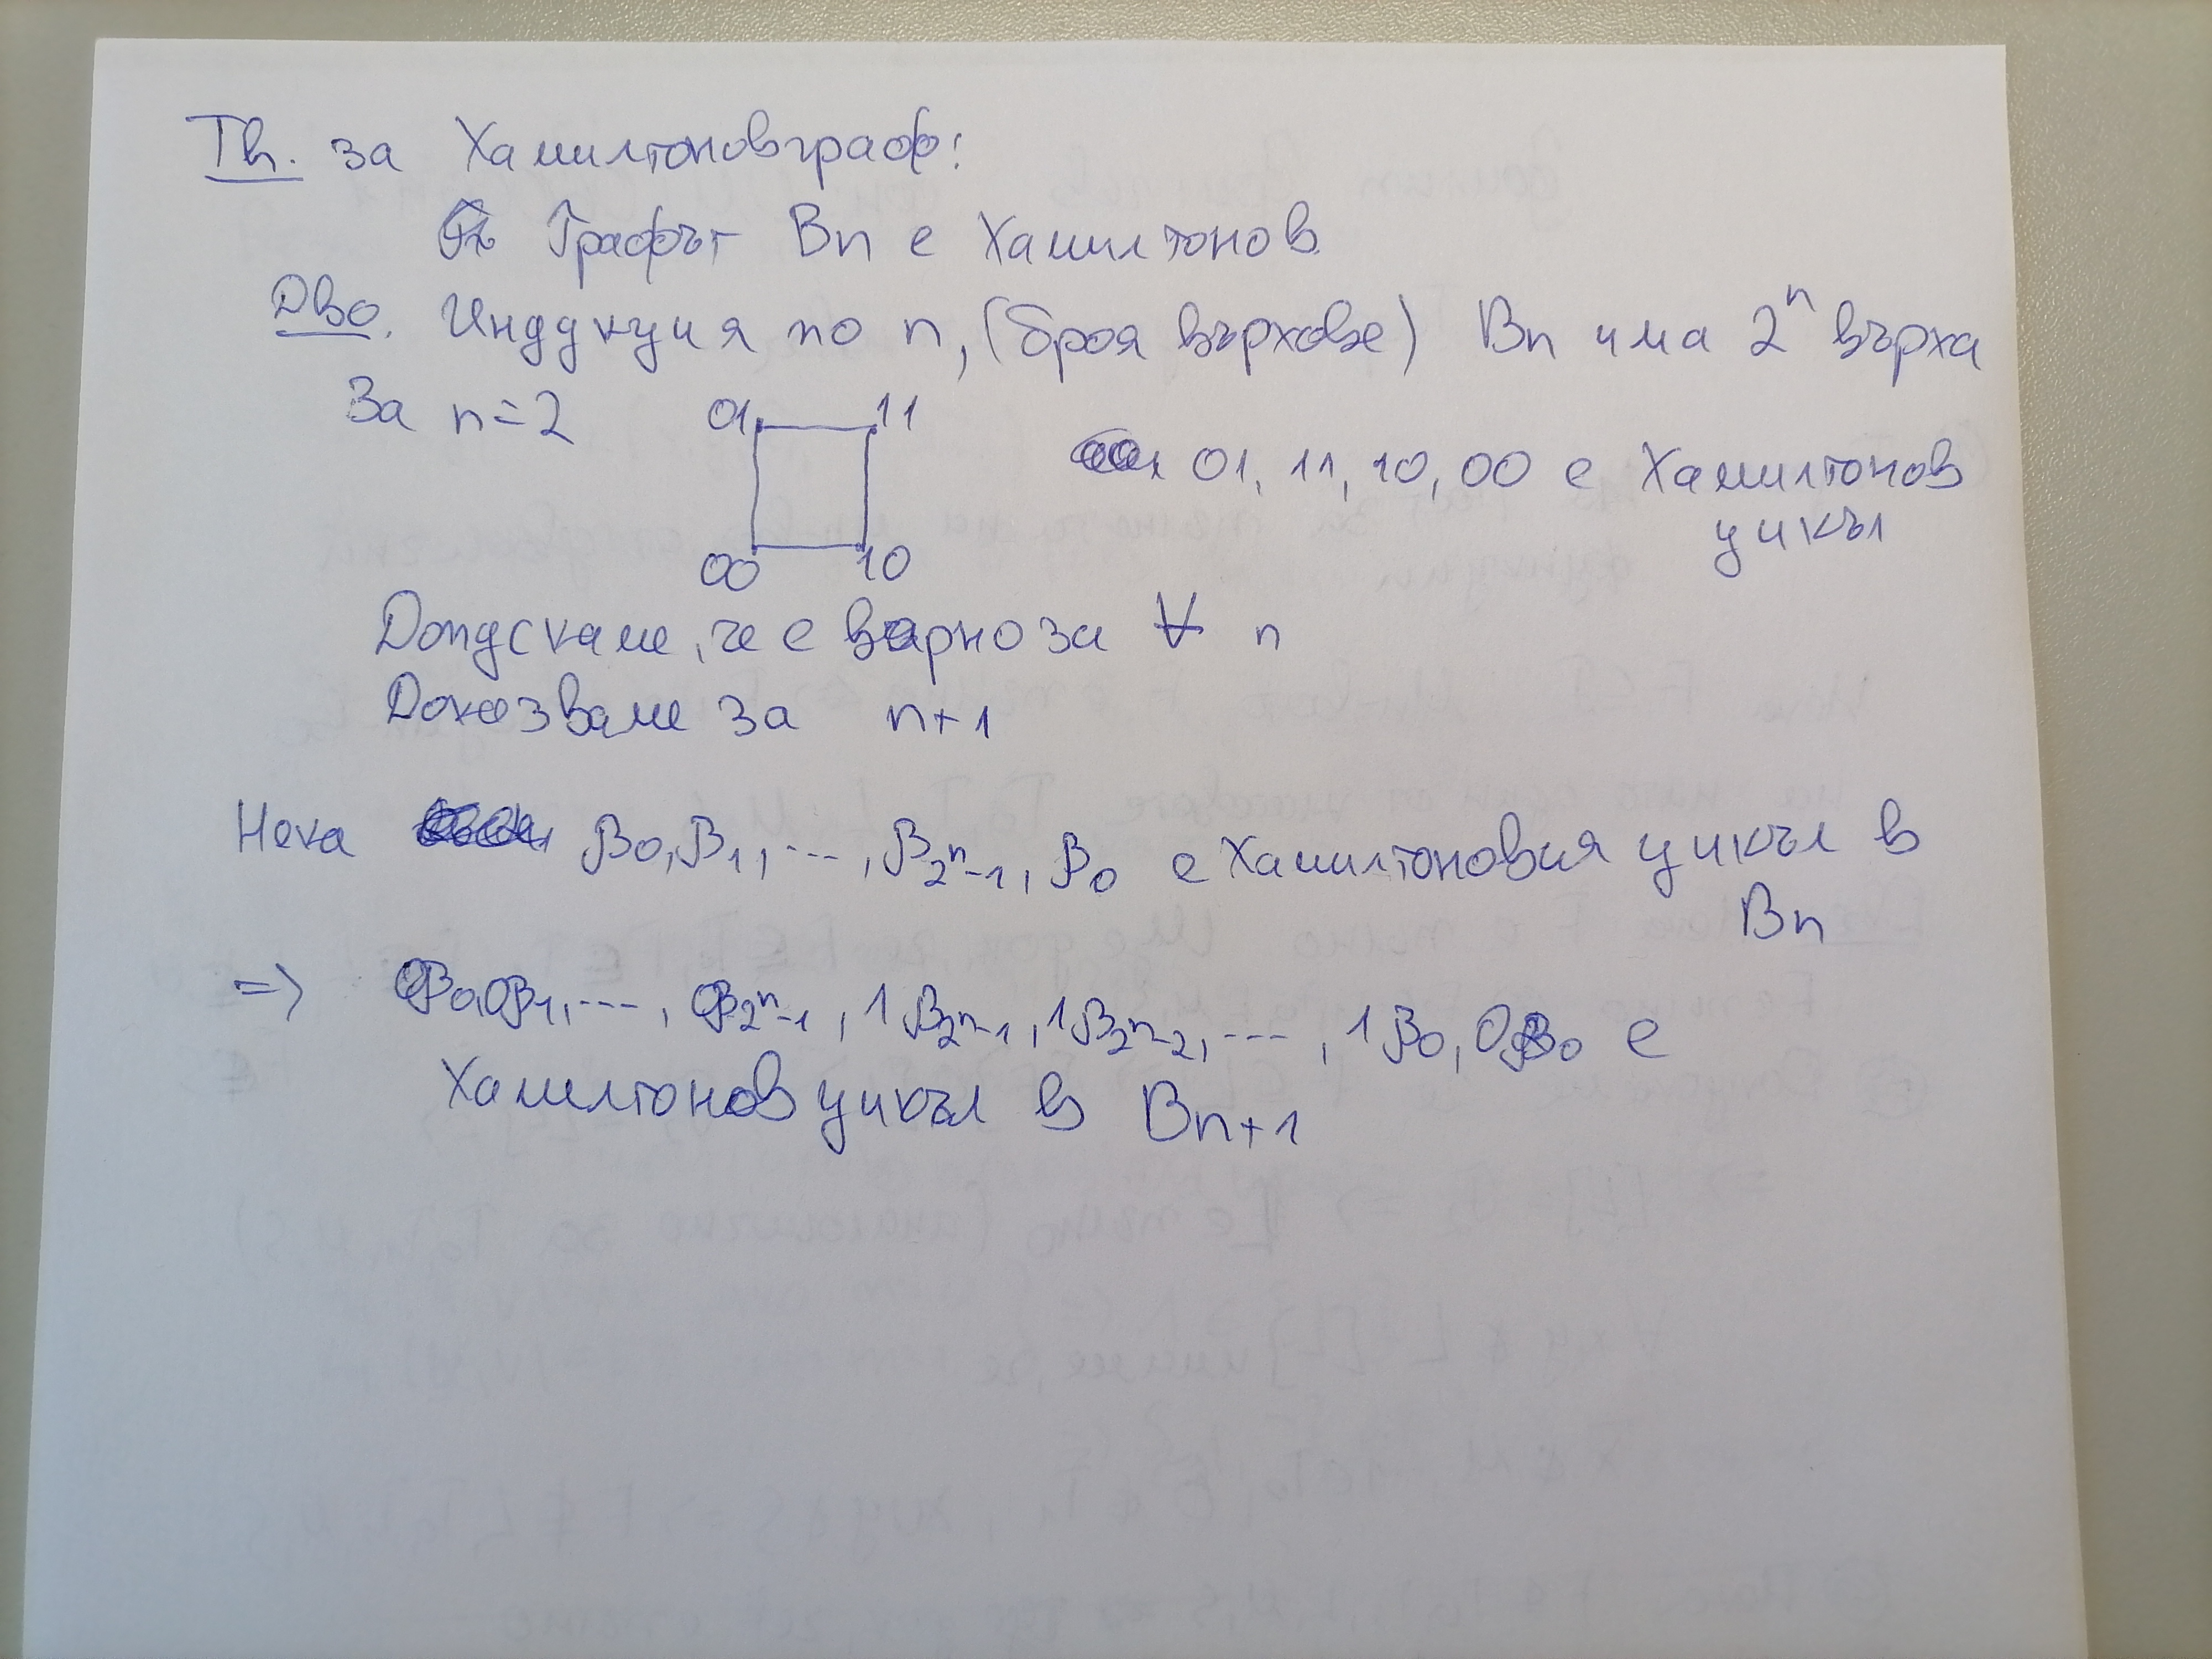 Th. за Хамилтонов граф:
Графът Bn е Хамилтонов.
Дво. Индукция по n, (броя върхове) Bn има 2^n върха
За n=2
01 11
01, 11, 10, 00 е Хамилтонов
цикъл
00 10
Допускаме, че е вярно за ∀ n
Доказваме за n+1
Нека β0, β1, ..., β2^n-1, β0 е Хамилтоновия цикъл в
Bn
=> 0β0, 0β1, ..., 0β2^n-1, 1β2^n-1, 1β2^n-2, ..., 1β0, 0β0 е
Хамилтонов цикъл в Bn+1